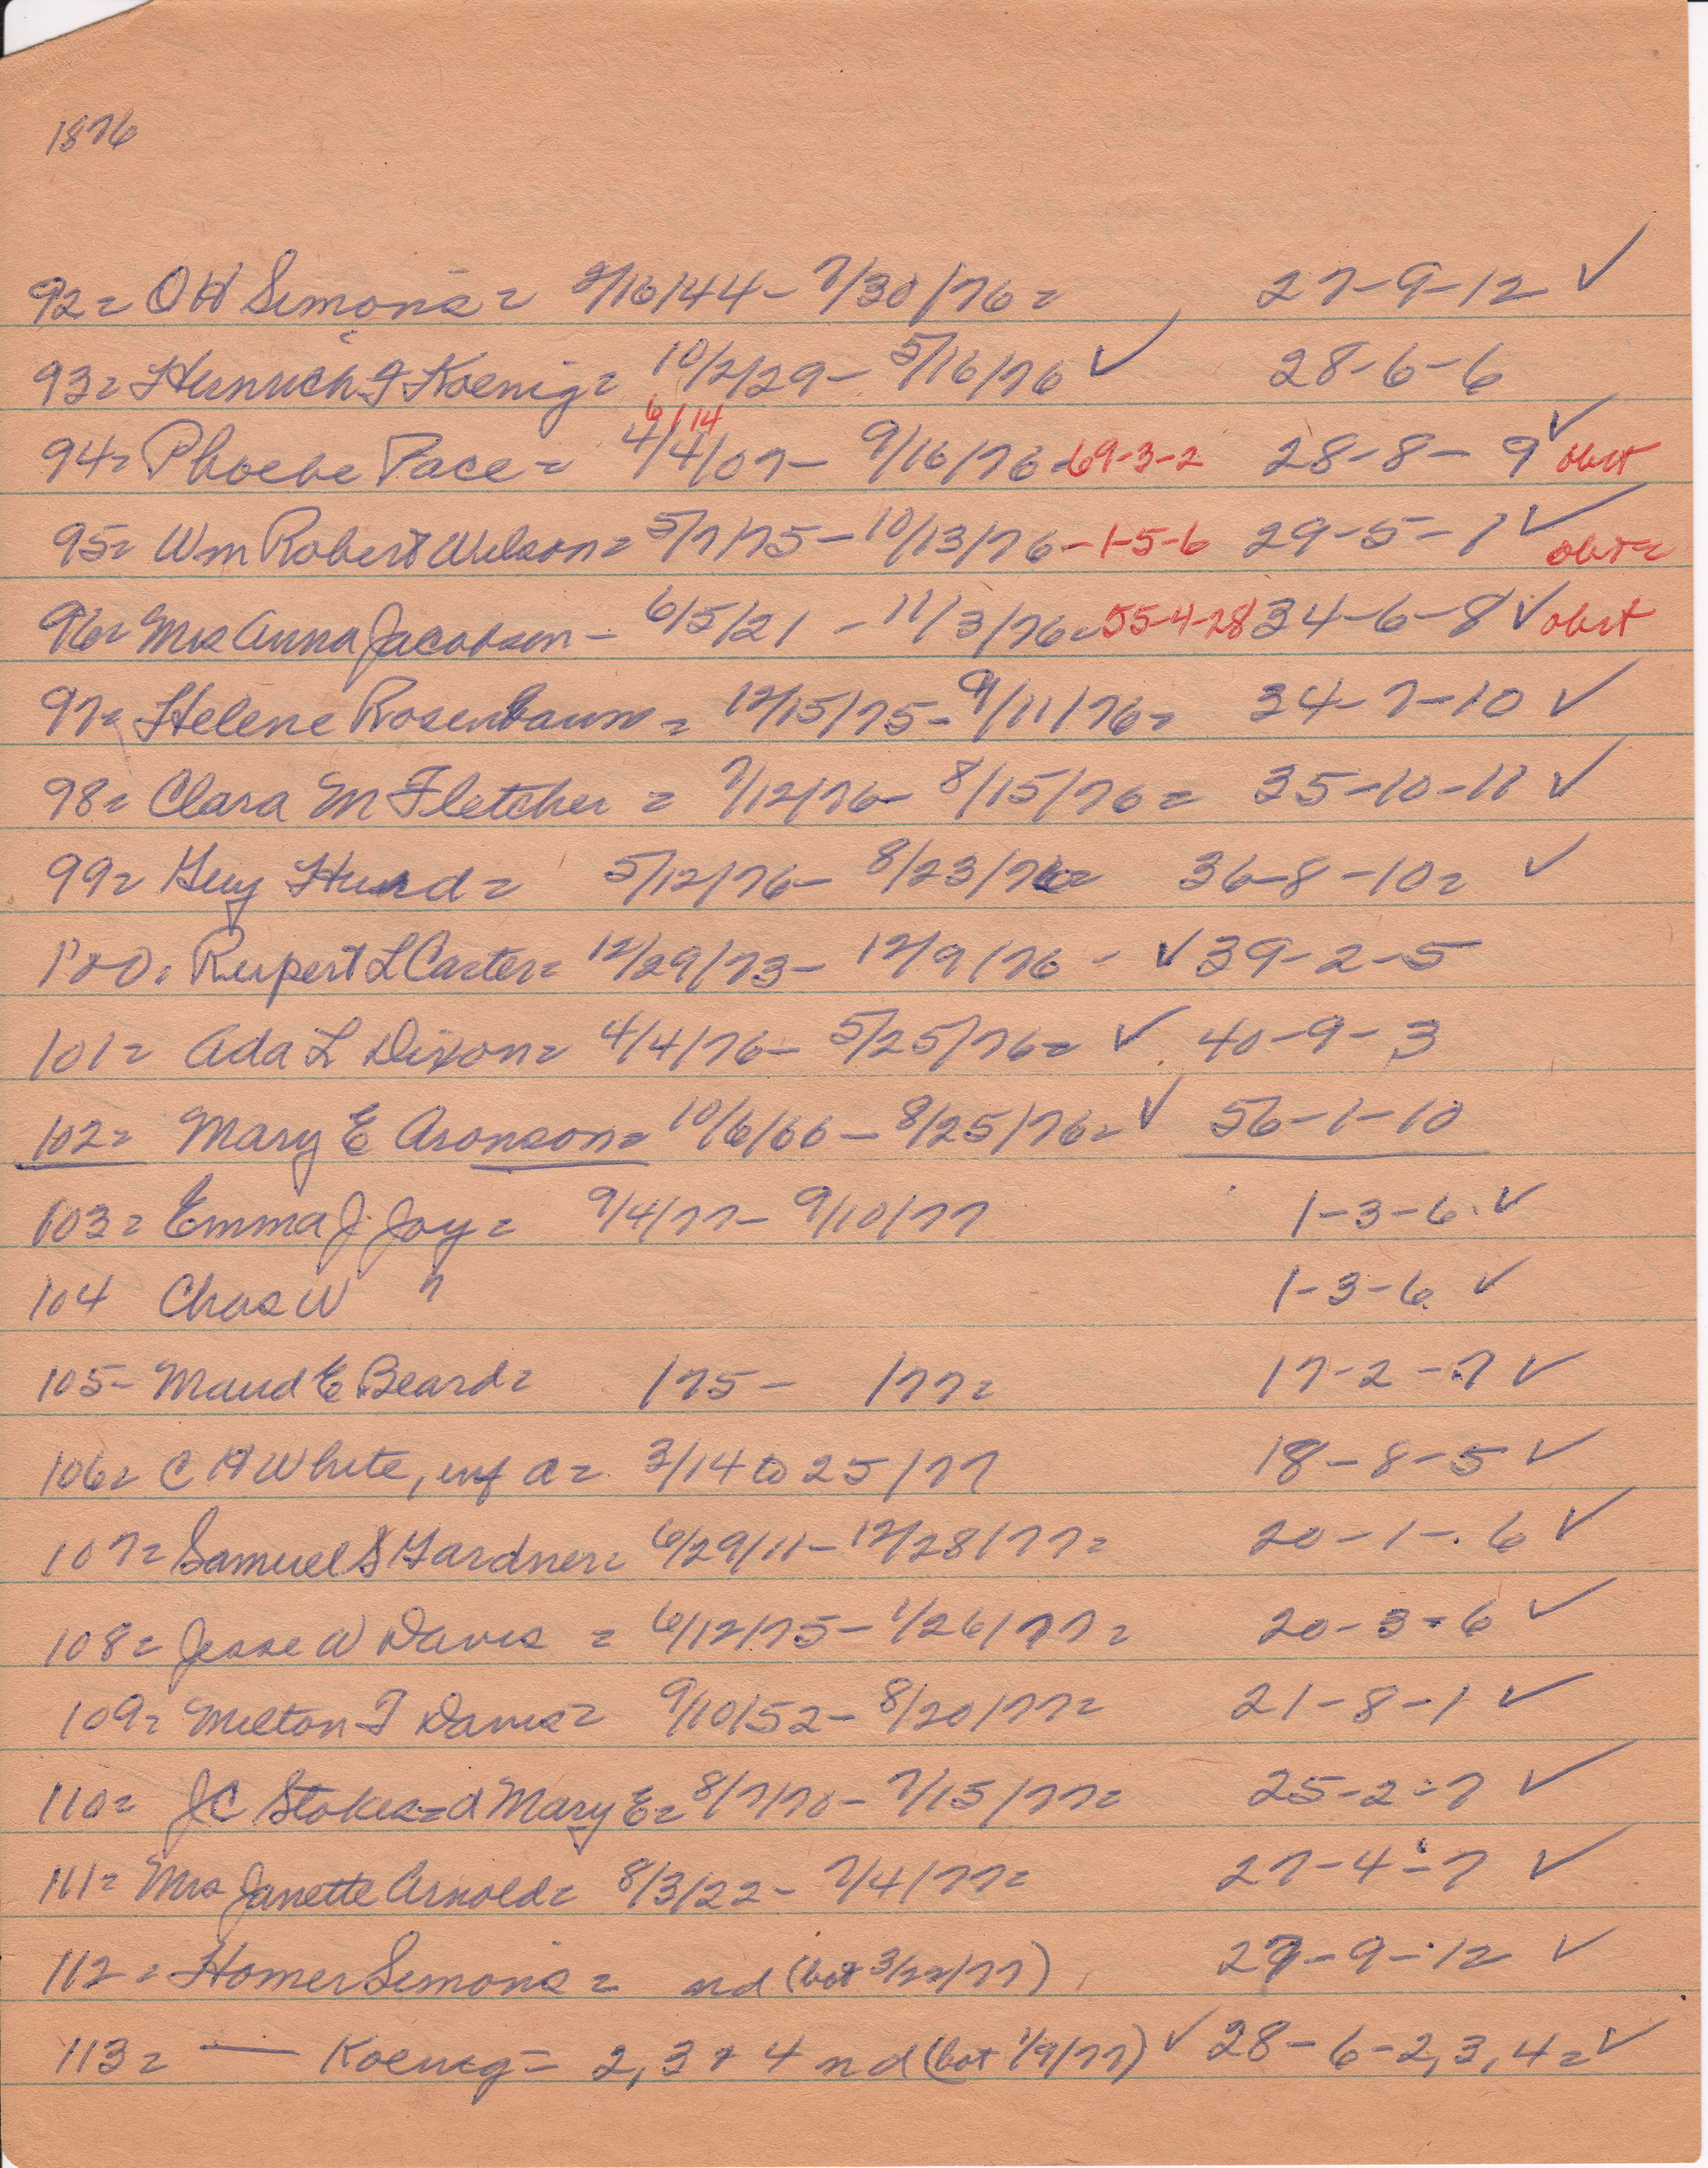 1876
92= O H Simons= 2/16/44- 7/30/76= 27-9-12 ✓
93= Heinrich F Koenig= 10/2/29- 5/16/76 ✓ 28-6-6
6/14
94= Phoebe Pace= 4/4/07- 9/16/76-69-3-2 28-8-9 ✓ obit
95= Wm Robert Wilson= 5/7/75- 10/13/76-1-5-6 29-5-7 ✓ obit=
96= Mrs Anna Jacobson- 6/5/21 - 11/3/76-55-4-28 34-6-8 ✓ obit
97= Helene Rosenbaum= 12/15/75- 9/11/76= 34-7-10 ✓
98= Clara M Fletcher = 7/12/76- 8/15/76= 35-10-11 ✓
99= Guy Hurd= 5/12/76- 8/23/76= 36-8-10= ✓
100= Rupert L Carter= 12/29/73- 12/9/76 - ✓ 39-2-5
101= Ada L Dixon= 4/4/76- 5/25/76= ✓ 40-9-3
102= Mary E Aronson= 10/6/66- 8/25/76= ✓ 56-1-10
103= Emma J Joy= 9/4/77- 9/10/77 1-3-6 ✓
104 Chas W " 1-3-6 ✓
105- Maud E Beard= /75- /77= 17-2-7 ✓
106= C H White, inf a= 3/14 to 25/77 18-8-5 ✓
107= Samuel S Gardner= 6/29/11- 12/28/77= 20-1-6 ✓
108= Jesse W Davis = 6/12/75- 1/26/77= 20-3-6 ✓
109= Milton F Davis= 9/10/52- 8/20/77= 21-8-1 ✓
110= J C Stokes=a Mary E= 8/7/70- 7/15/77= 25-2-7 ✓
111= Mrs Janette Arnold= 8/3/22- 7/4/77= 27-4-7 ✓
112= Homer Simons= nd (bot 3/22/77) 27-9-12 ✓
113= — Koenig= 2, 3 + 4 nd (bot 1/9/77) ✓ 28-6-2, 3, 4= ✓